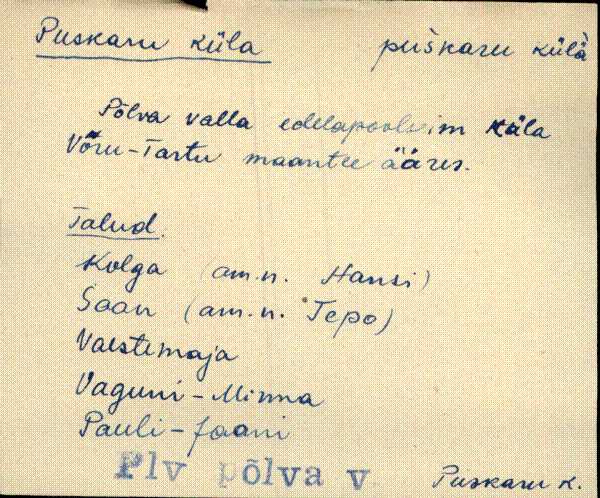 Puskaru küla puškaru külä
Põlva valla edelapoolseim küla
Võru-Tartu maantee ääres.
Talud.
Kolga (am.n. Hansi)
Saan (am.n. Tepo)
Vaestemaja
Vaguni-Minna
Pauli-Jaani
Plv põlva v
Puskaru k.